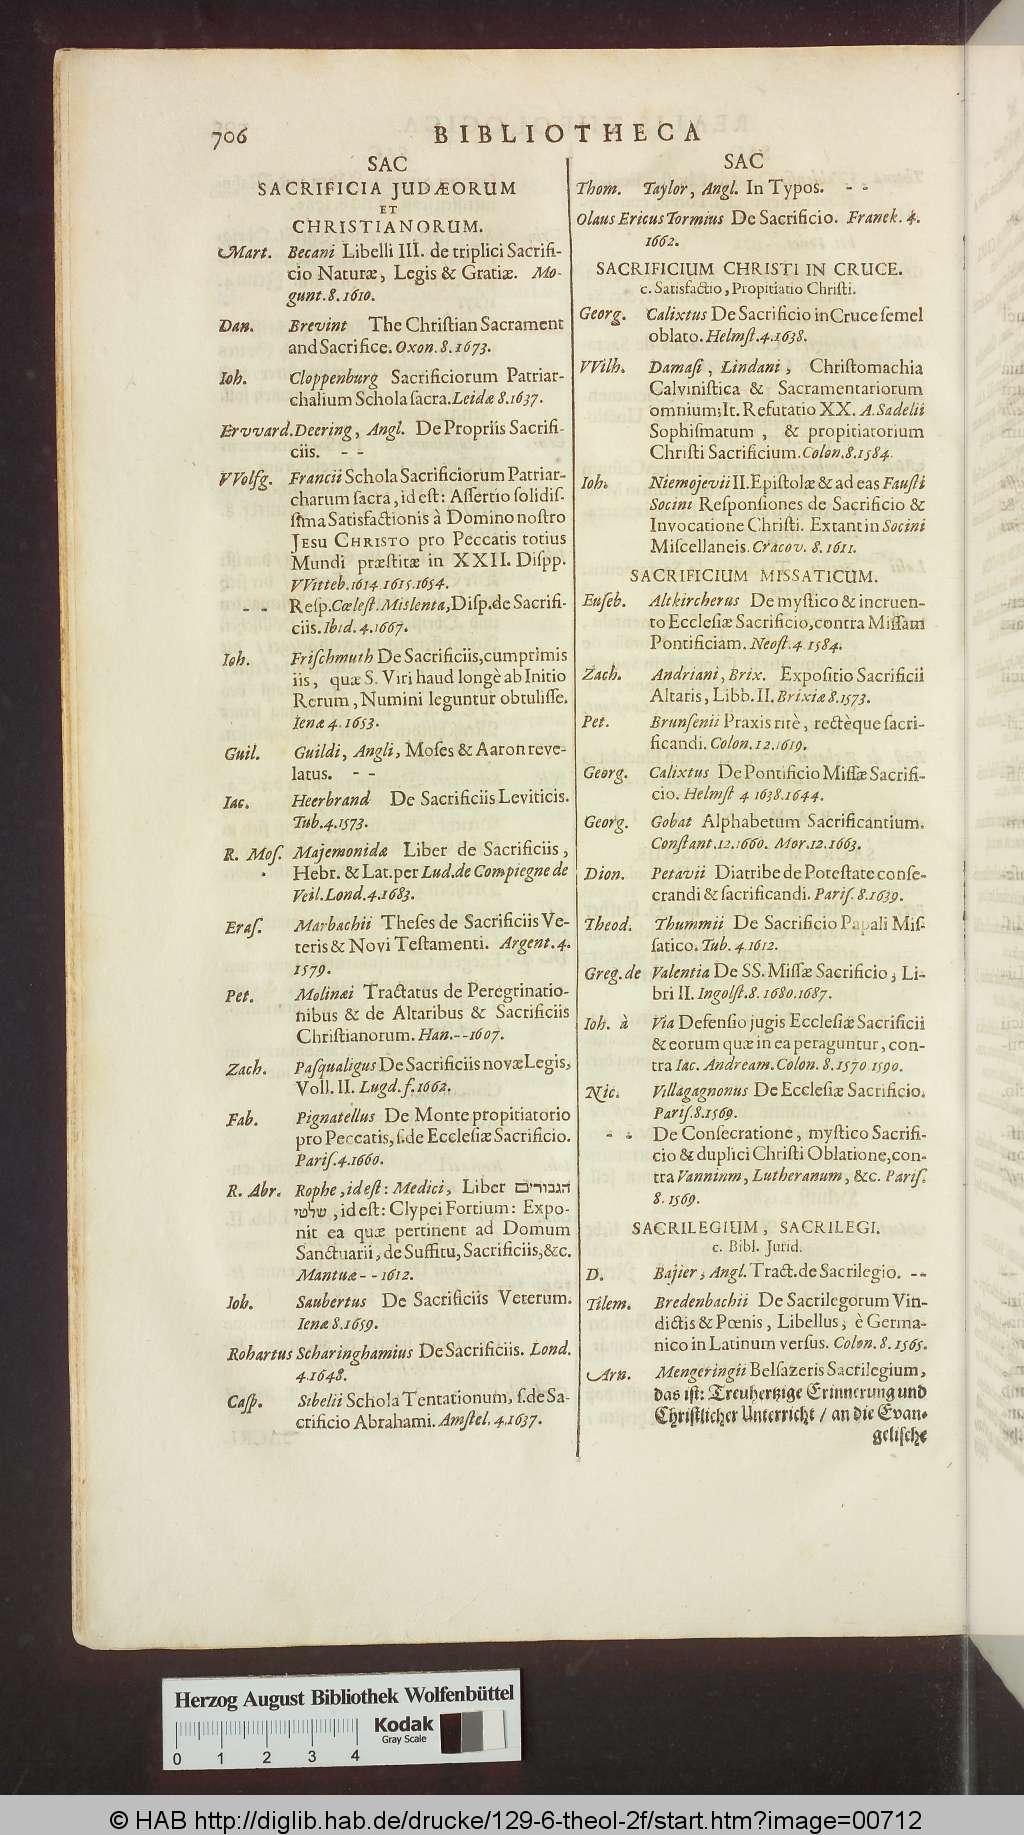 706
BIBLIOTHECA
SAC
SACRIFICIA JUDÆORUM
ET
CHRISTIANORUM.
Mart. Becani Libelli III. de triplici Sacrifi-
cio Naturæ, Legis & Gratiæ. Mo-
gunt. 8. 1610.
Dan. Brevint The Chriſtian Sacrament
and Sacrifice. Oxon. 8. 1673.
Ioh. Cloppenburg Sacrificiorum Patriar-
chalium Schola ſacra. Leidæ 8. 1637.
Ervvard. Deering, Angl. De Propriis Sacrifi-
ciis. - -
VVolfg. Francii Schola Sacrificiorum Patriar-
charum ſacra, id eſt: Aſſertio ſolidiſ-
ſima Satisfactionis à Domino noſtro
JESU CHRISTO pro Peccatis totius
Mundi præſtitæ in XXII. Diſpp.
VVitteb. 1614. 1615. 1654.
- - Reſp. Cœleſt. Mislenta, Diſp. de Sacrifi-
ciis. Ibid. 4. 1667.
Ioh. Friſchmuth De Sacrificiis, cumprimis
iis, quæ S. Viri haud longè ab Initio
Rerum, Numini leguntur obtuliſſe.
Ienæ 4. 1653.
Guil. Guildi, Angli, Moſes & Aaron reve-
latus. - -
Iac. Heerbrand De Sacrificiis Leviticis.
Tub. 4. 1573.
R. Moſ. Majemonidæ Liber de Sacrificiis,
Hebr. & Lat. per Lud. de Compiegne de
Veil. Lond. 4. 1683.
Eraſ. Marbachii Theſes de Sacrificiis Ve-
teris & Novi Teſtamenti. Argent. 4.
1579.
Pet. Molinæi Tractatus de Peregrinatio-
nibus & de Altaribus & Sacrificiis
Chriſtianorum. Han. - - 1607.
Zach. Paſqualigus De Sacrificiis novæ Legis,
Voll. II. Lugd. f. 1662.
Fab. Pignatellus De Monte propitiatorio
pro Peccatis, ſ. de Eccleſiæ Sacrificio.
Pariſ. 4. 1660.
R. Abr. Rophe, id eſt: Medici, Liber הגבורים
שלטי, id eſt: Clypei Fortium: Expo-
nit ea quæ pertinent ad Domum
Sanctuarii, de Suffitu, Sacrificiis, &c.
Mantuæ - - 1612.
Ioh. Saubertus De Sacrificiis Veterum.
Ienæ 8. 1659.
Rohartus Scharinghamius De Sacrificiis. Lond.
4. 1648.
Caſp. Sibelii Schola Tentationum, ſ. de Sa-
crificio Abrahami. Amſtel. 4. 1637.
SAC
Thom. Taylor, Angl. In Typos. - -
Olaus Ericus Tormius De Sacrificio. Franek. 4.
1662.
SACRIFICIUM CHRISTI IN CRUCE.
c. Satisfactio, Propitiatio Chriſti.
Georg. Calixtus De Sacrificio in Cruce ſemel
oblato. Helmſt. 4. 1638.
VVilh. Damaſi, Lindani, Chriſtomachia
Calviniſtica & Sacramentariorum
omnium; It. Refutatio XX. A. Sadelii
Sophiſmatum, & propitiatorium
Chriſti Sacrificium. Colon. 8. 1584.
Ioh. Niemojevii II. Epiſtolæ & ad eas Fauſti
Socini Reſponſiones de Sacrificio &
Invocatione Chriſti. Extant in Socini
Miſcellaneis. Cracov. 8. 1611.
SACRIFICIUM MISSATICUM.
Euſeb. Altkircherus De myſtico & incruen-
to Eccleſiæ Sacrificio, contra Miſſam
Pontificiam. Neoſt. 4 1584.
Zach. Andriani, Brix. Expoſitio Sacrificii
Altaris, Libb. II. Brixiæ 8. 1573.
Pet. Brunſenii Praxis ritè, rectèque ſacri-
ficandi. Colon. 12. 1619.
Georg. Calixtus De Pontificio Miſſæ Sacrifi-
cio. Helmſt 4 1638. 1644.
Georg. Gobat Alphabetum Sacrificantium.
Conſtant. 12. 1660. Mor. 12. 1663.
Dion. Petavii Diatribe de Poteſtate conſe-
crandi & ſacrificandi. Pariſ. 8. 1639.
Theod. Thummii De Sacrificio Papali Miſ-
ſatico. Tub. 4. 1612.
Greg. de Valentia De SS. Miſſæ Sacrificio, Li-
bri II. Ingolſt. 8. 1680. 1687.
Ioh. à Via Defenſio jugis Eccleſiæ Sacrificii
& eorum quæ in ea peraguntur, con-
tra Iac. Andream. Colon. 8. 1570 1590.
Nic. Villagagnonus De Eccleſiæ Sacrificio.
Pariſ. 8. 1569.
- - De Conſecratione, myſtico Sacrifi-
cio & duplici Chriſti Oblatione, con-
tra Vannium, Lutheranum, &c. Pariſ.
8. 1569.
SACRILEGIUM, SACRILEGI.
c. Bibl. Jurid.
D. Bajier, Angl. Tract. de Sacrilegio. - -
Tilem. Bredenbachii De Sacrilegorum Vin-
dictis & Pœnis, Libellus, è Germa-
nico in Latinum verſus. Colon. 8. 1565.
Arn. Mengeringii Belſazeris Sacrilegium,
das iſt: Treuhertzige Erinnerung und
Chriſtlicher Unterricht / an die Evan-
geliſche
Herzog August Bibliothek Wolfenbüttel
Kodak
Gray Scale
0 1 2 3 4
© HAB http://diglib.hab.de/drucke/129-6-theol-2f/start.htm?image=00712